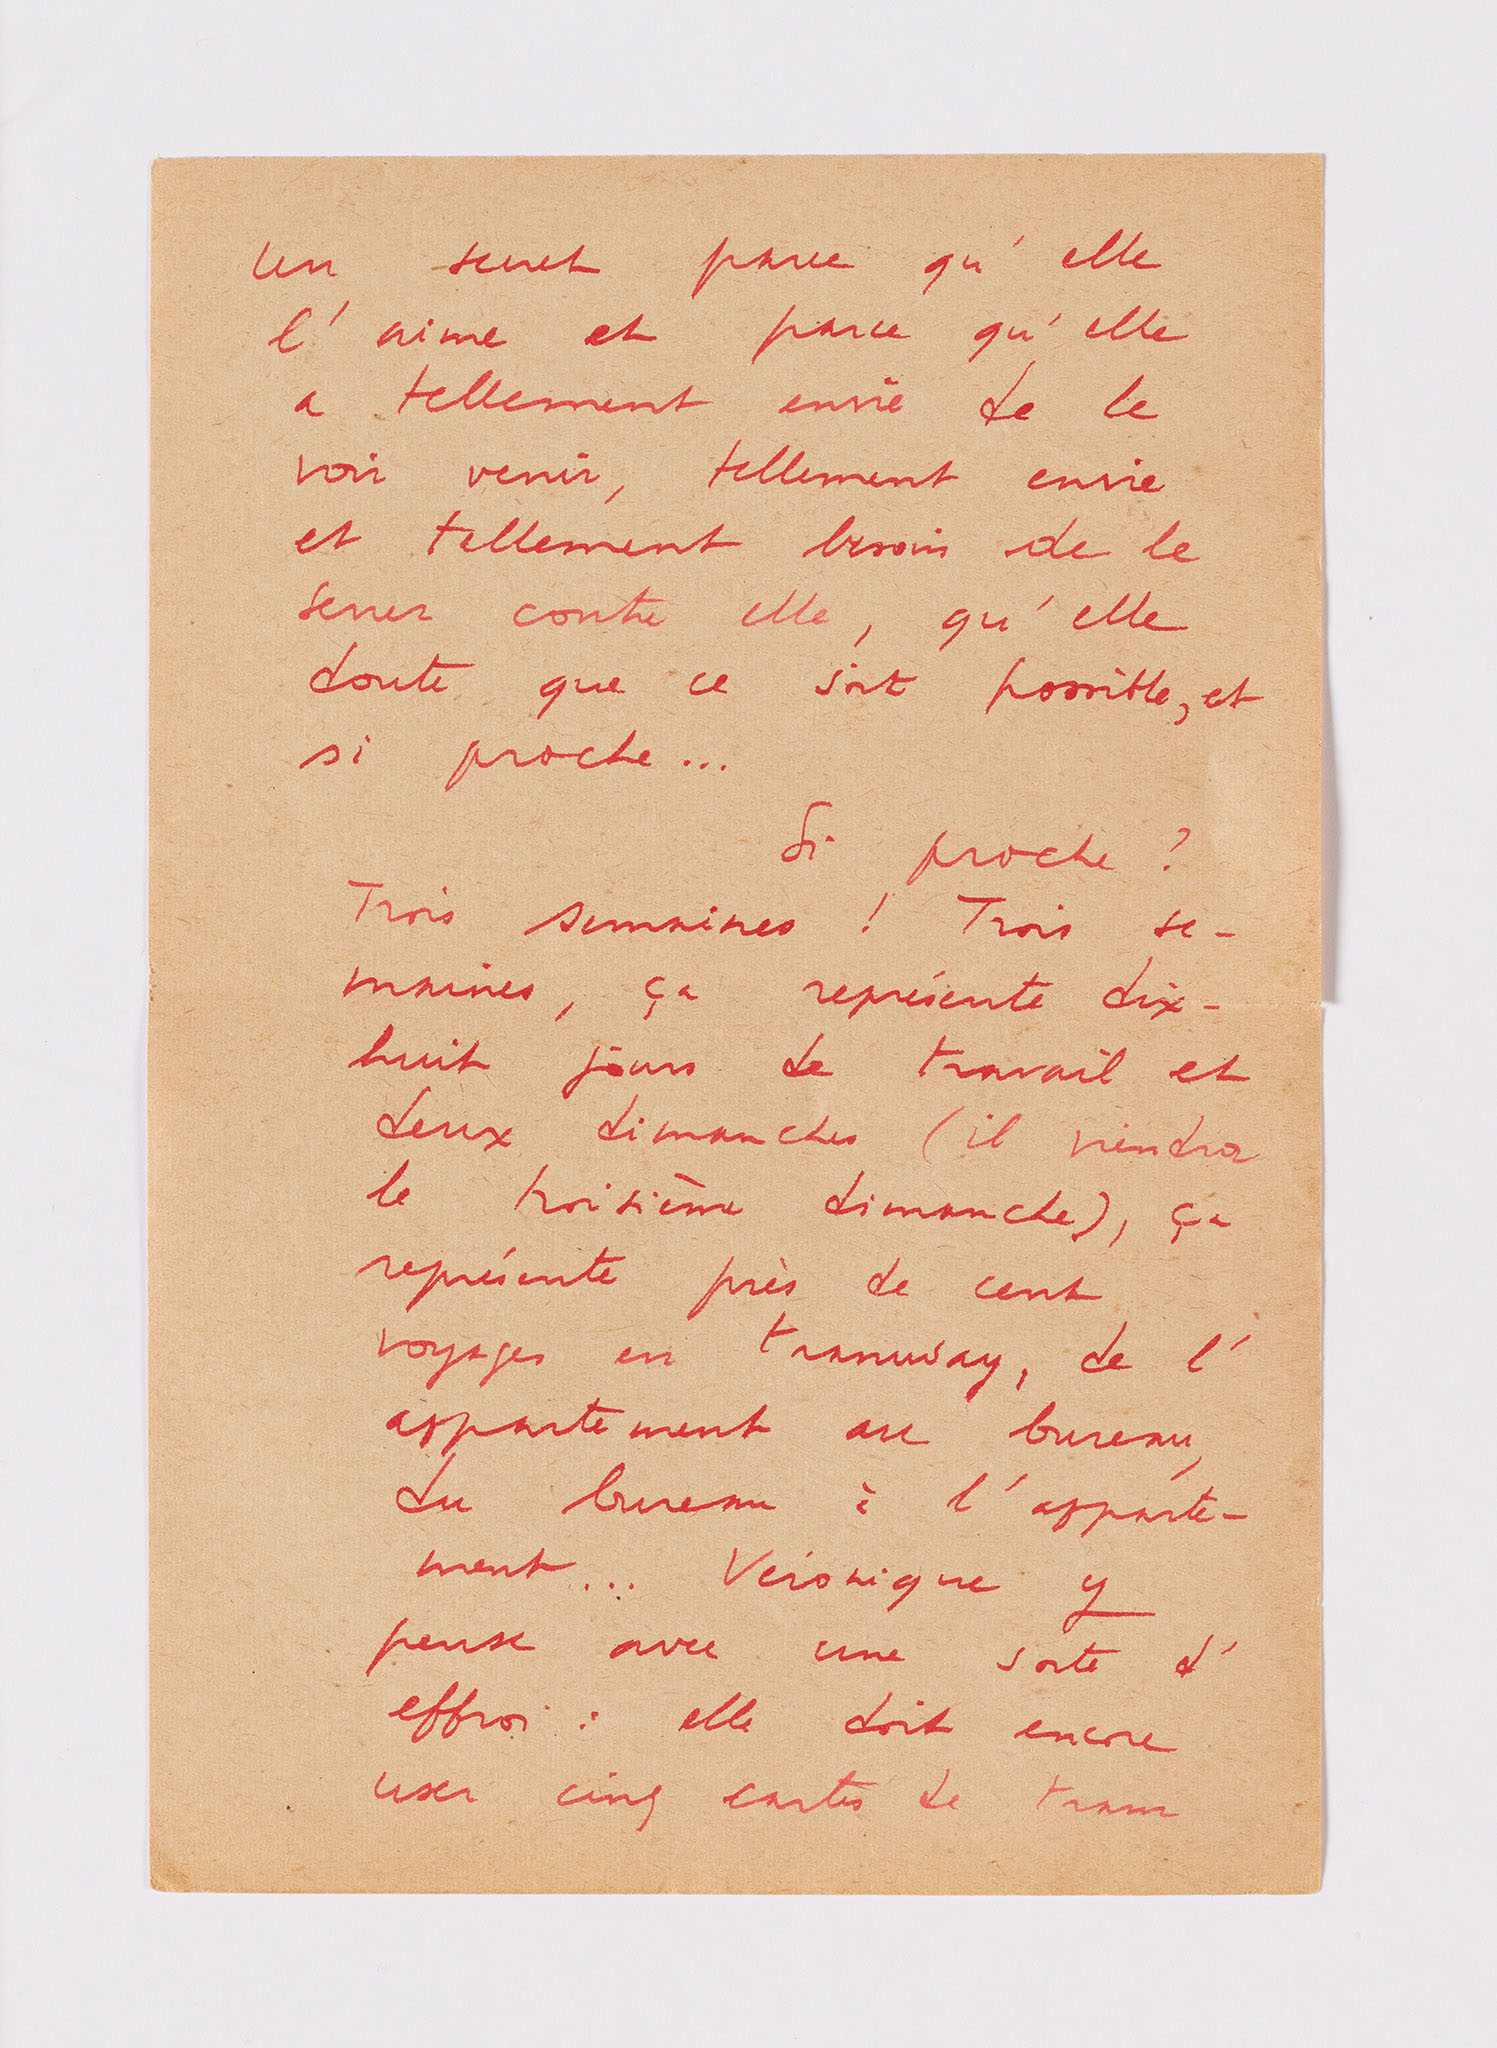 un secret parce qu'elle
l'aime et parce qu'elle
a tellement envie de le
voir venir, tellement envie
et tellement besoin de le
serrer contre elle, qu'elle
doute que ce soit possible, et
si proche...
Si proche ?
Trois semaines ! Trois se-
maines, ça représente dix-
huit jours de travail et
deux dimanches (il viendra
le troisième dimanche), ça
représente près de cent
voyages en tramway, de l'
appartement au bureau,
du bureau à l'apparte-
ment... Véronique y
pense avec une sorte d'
effroi : elle doit encore
user cinq cartes de tram